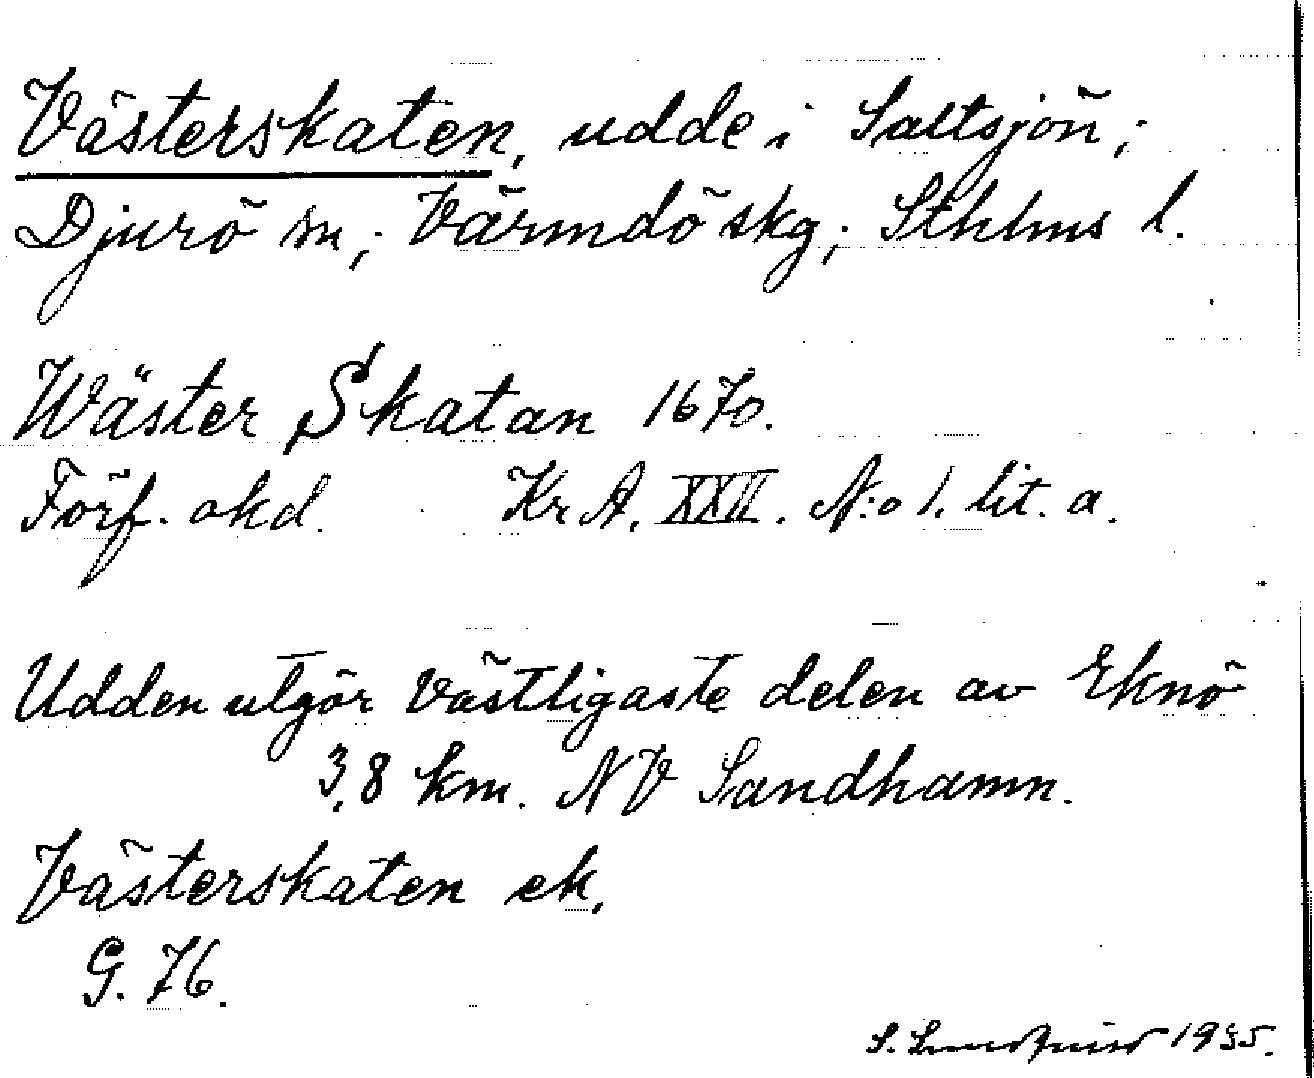 Västerskaten, udde i Saltsjön;
Djurö sn; Värmdö skg; Sthlms l.
Wäster Skatan 1670.
Förf. okd. Kr A. XXII. N:o 1. lit. a.
Udden utgör västligaste delen av Eknö
3,8 km. NV Sandhamn.
Västerskaten ek.
G. 76.
S. Lundquist 1935.